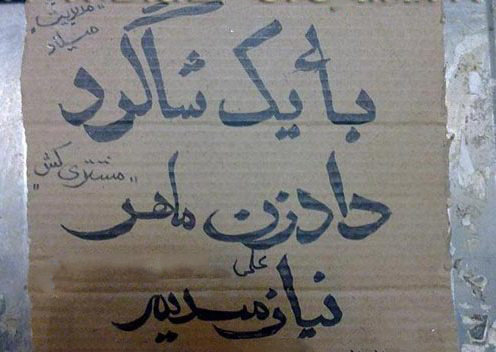 "مدیریت"
میلاد
بائ یک شاگرد
"مشتری کش"
دادزن ماهر
علی
نیازمندیم